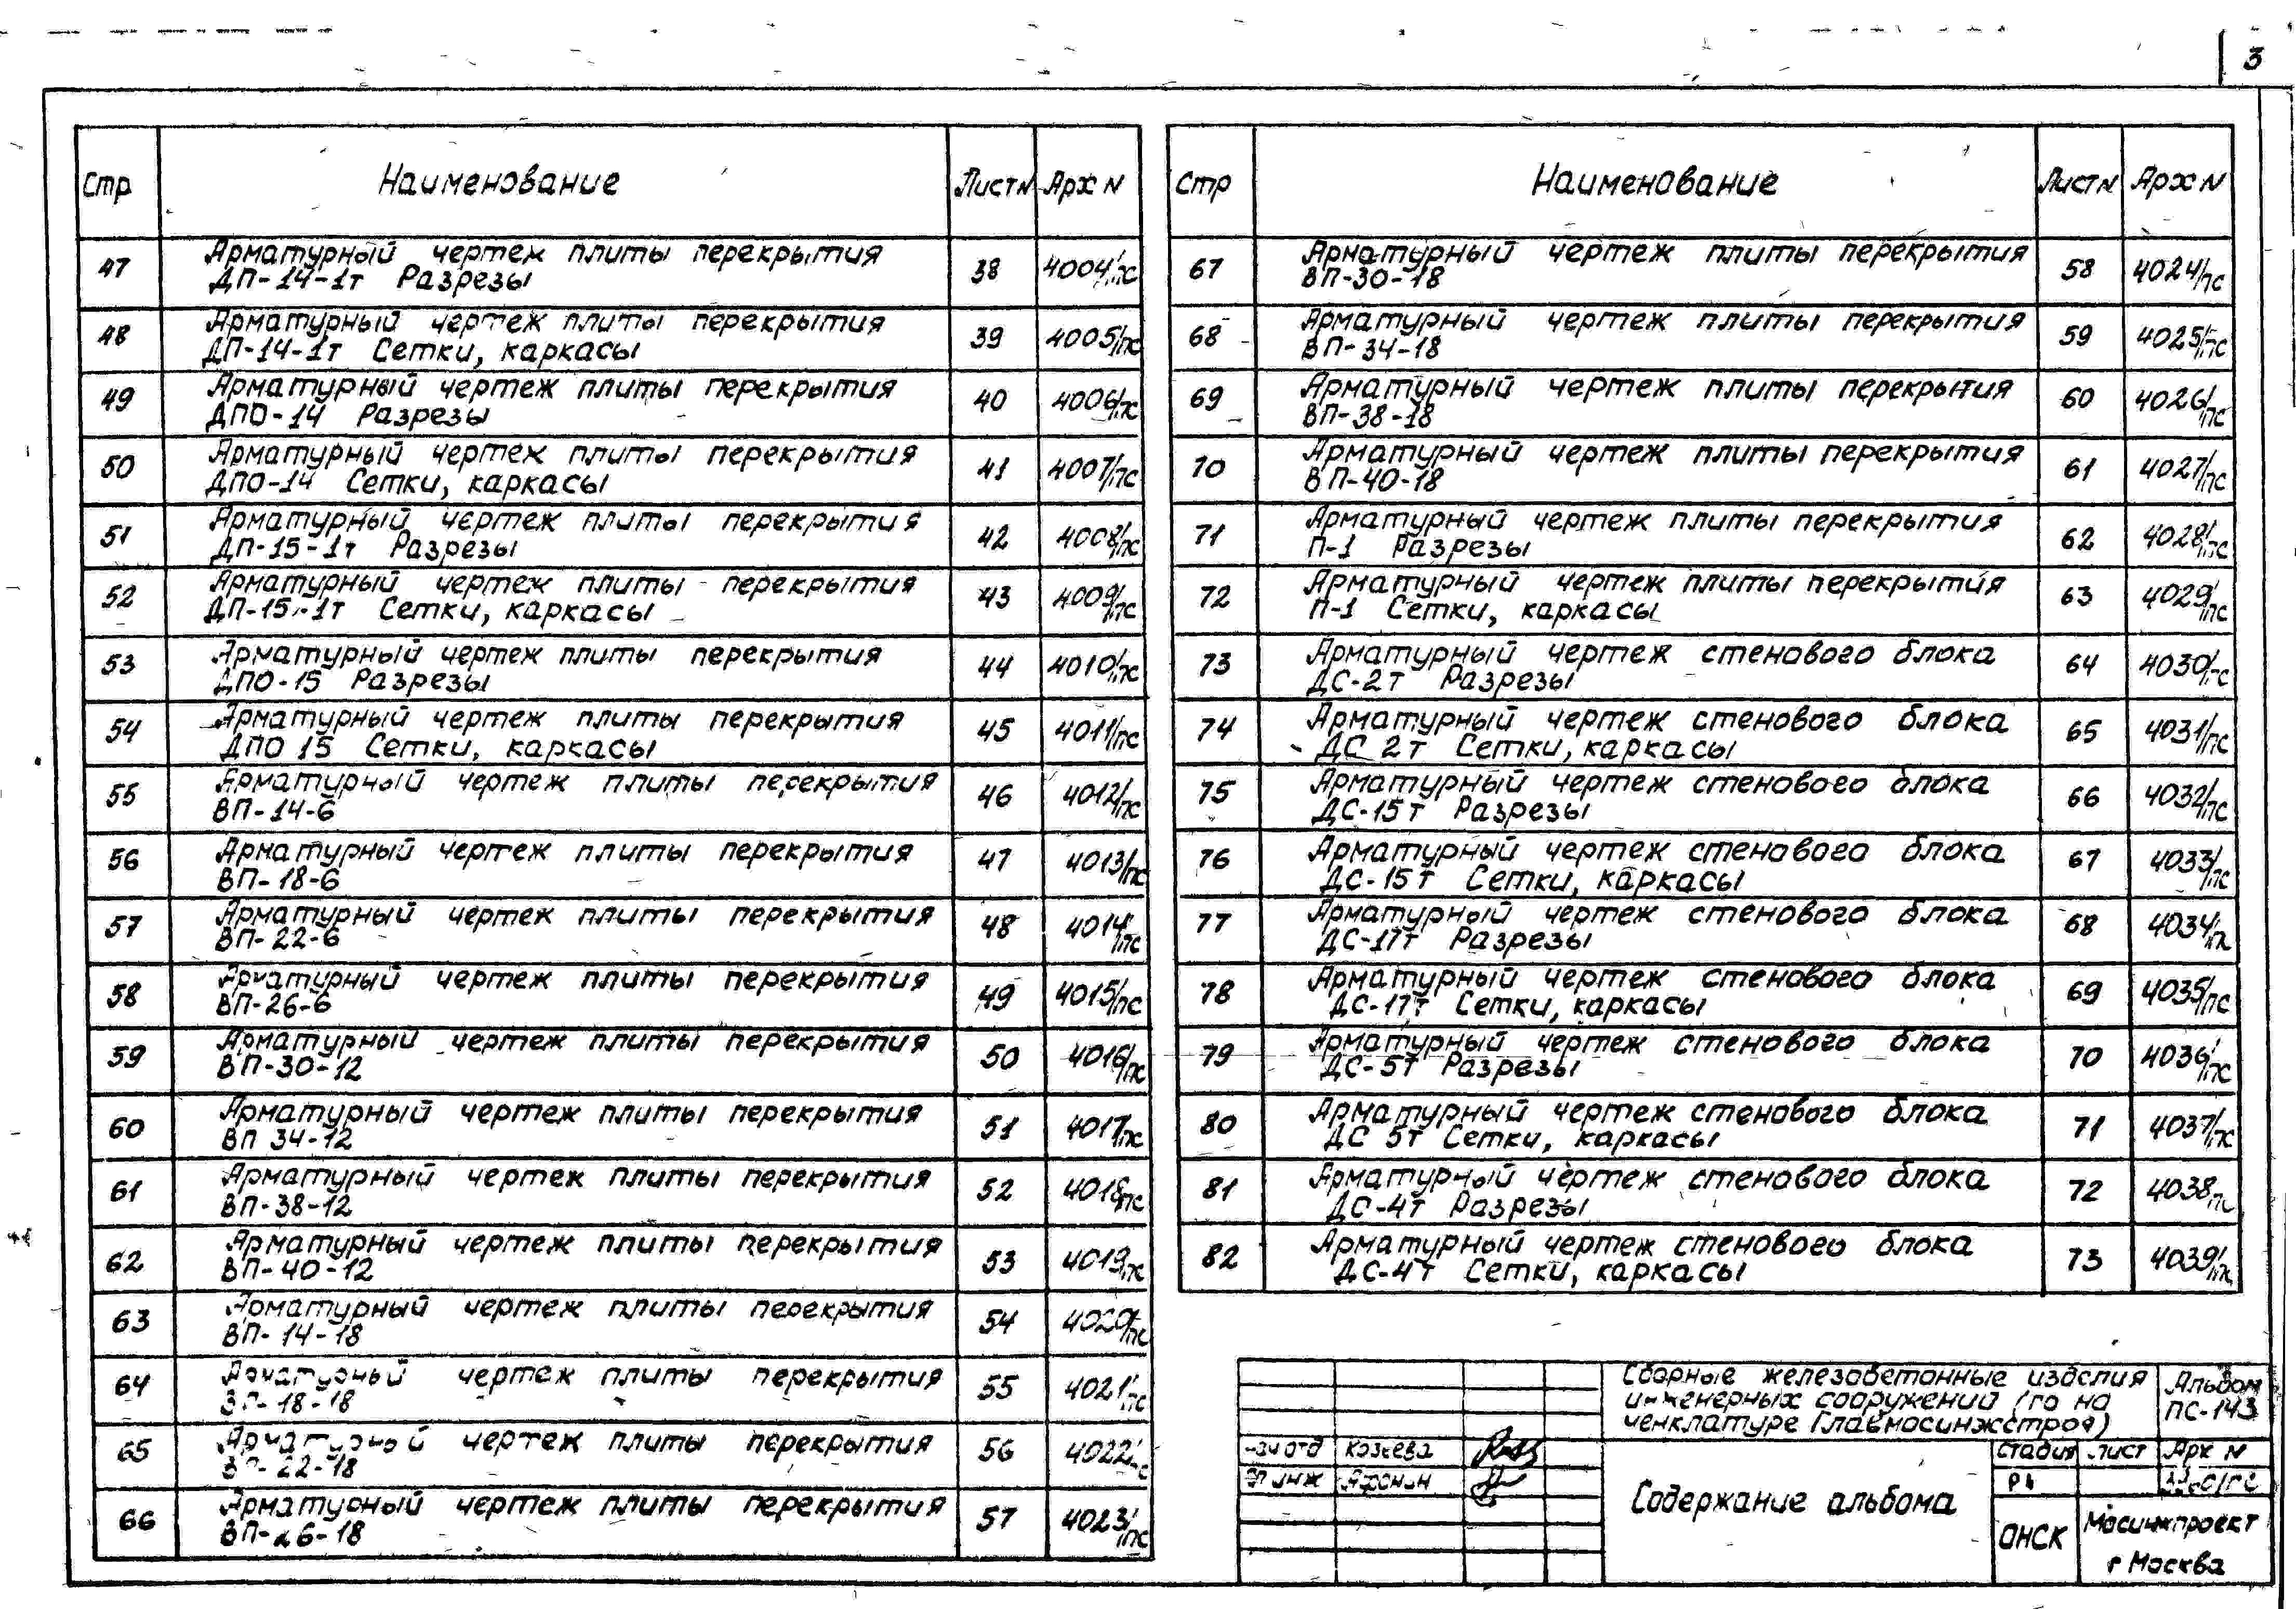 3
Стр Наименование Лист N Арх N
47 Арматурный чертеж плиты перекрытия 38 4004/пс
ДП-14-1т Разрезы
48 Арматурный чертеж плиты перекрытия 39 4005/пс
ДП-14-1т Сетки, каркасы
49 Арматурный чертеж плиты перекрытия 40 4006/пс
ДПО-14 Разрезы
50 Арматурный чертеж плиты перекрытия 41 4007/пс
ДПО-14 Сетки, каркасы
51 Арматурный чертеж плиты перекрытия 42 4008/пс
ДП-15-1т Разрезы
52 Арматурный чертеж плиты перекрытия 43 4009/пс
ДП-15-1т Сетки, каркасы
53 Арматурный чертеж плиты перекрытия 44 4010/пс
ДПО-15 Разрезы
54 Арматурный чертеж плиты перекрытия 45 4011/пс
ДПО 15 Сетки, каркасы
55 Арматурный чертеж плиты перекрытия 46 4012/пс
ВП-14-6
56 Арматурный чертеж плиты перекрытия 47 4013/пс
ВП-18-6
57 Арматурный чертеж плиты перекрытия 48 4014/пс
ВП-22-6
58 Арматурный чертеж плиты перекрытия 49 4015/пс
ВП-26-6
59 Арматурный чертеж плиты перекрытия 50 4016/пс
ВП-30-12
60 Арматурный чертеж плиты перекрытия 51 4017/пс
ВП 34-12
61 Арматурный чертеж плиты перекрытия 52 4018/пс
ВП-38-12
62 Арматурный чертеж плиты перекрытия 53 4019/пс
ВП-40-12
63 Арматурный чертеж плиты перекрытия 54 4020/пс
ВП-14-18
64 Арматурный чертеж плиты перекрытия 55 4021/пс
ВП-18-18
65 Арматурный чертеж плиты перекрытия 56 4022/пс
ВП-22-18
66 Арматурный чертеж плиты перекрытия 57 4023/пс
ВП-26-18
Стр Наименование Лист N Арх N
67 Арматурный чертеж плиты перекрытия 58 4024/пс
ВП-30-18
68 Арматурный чертеж плиты перекрытия 59 4025/пс
ВП-34-18
69 Арматурный чертеж плиты перекрытия 60 4026/пс
ВП-38-18
70 Арматурный чертеж плиты перекрытия 61 4027/пс
ВП-40-18
71 Арматурный чертеж плиты перекрытия 62 4028/пс
П-1 Разрезы
72 Арматурный чертеж плиты перекрытия 63 4029/пс
П-1 Сетки, каркасы
73 Арматурный чертеж стенового блока 64 4030/пс
ДС-2т Разрезы
74 Арматурный чертеж стенового блока 65 4031/пс
ДС 2т Сетки, каркасы
75 Арматурный чертеж стенового блока 66 4032/пс
ДС-15т Разрезы
76 Арматурный чертеж стенового блока 67 4033/пс
ДС-15т Сетки, каркасы
77 Арматурный чертеж стенового блока 68 4034/пс
ДС-17т Разрезы
78 Арматурный чертеж стенового блока 69 4035/пс
ДС-17т Сетки, каркасы
79 Арматурный чертеж стенового блока 70 4036/пс
ДС-5т Разрезы
80 Арматурный чертеж стенового блока 71 4037/пс
ДС 5т Сетки, каркасы
81 Арматурный чертеж стенового блока 72 4038/пс
ДС-4т Разрезы
82 Арматурный чертеж стенового блока 73 4039/пс
ДС-4т Сетки, каркасы
Сборные железобетонные изделия
инженерных сооружений (по но
менклатуре Главмосинжстроя)
Альбом
ПС-143
Нач отд Козеева
Гл инж Афонин
Содержание альбома
Стадия Лист Арх N
ОНСК
Мосинжпроект
г Москва